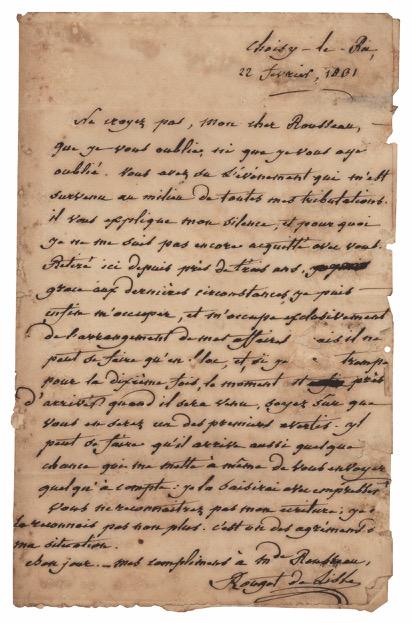 Choisy-le-Roi,
22 février, 1831
Ne croyez pas, mon cher Rousseau,
que je vous oublie, ni que je vous aye
oublié. Vous avez su l'événement qui m'est
survenu au milieu de toutes mes tribulations.
il vous explique mon silence, et pourquoi
je ne me suis pas encore acquitté avec vous.
Retiré ici depuis près de trois ans,
grace aux dernières circonstances, je puis
enfin m'occuper, et m'occupe exclusivement
de l'arrangement de mes affaires ais il ne
peut se faire qu'en loc, et, si je trompe
pour la dixième fois, le moment est près
d'arriver. quand il sera venu, soyez sûr que
vous en serez un des premiers avertis. il
peut se faire qu'il arrive aussi quelque
chance qui me mette à même de vous envoyer
quelqu'à compte: je la saisirai avec empressemt
Vous ne reconnaitrez pas mon écriture; je
la reconnais pas non plus. c'est un des agrémens
ma situation.
bon jour. mes complimens à Mde Rousseau,
Rouget de Lisle